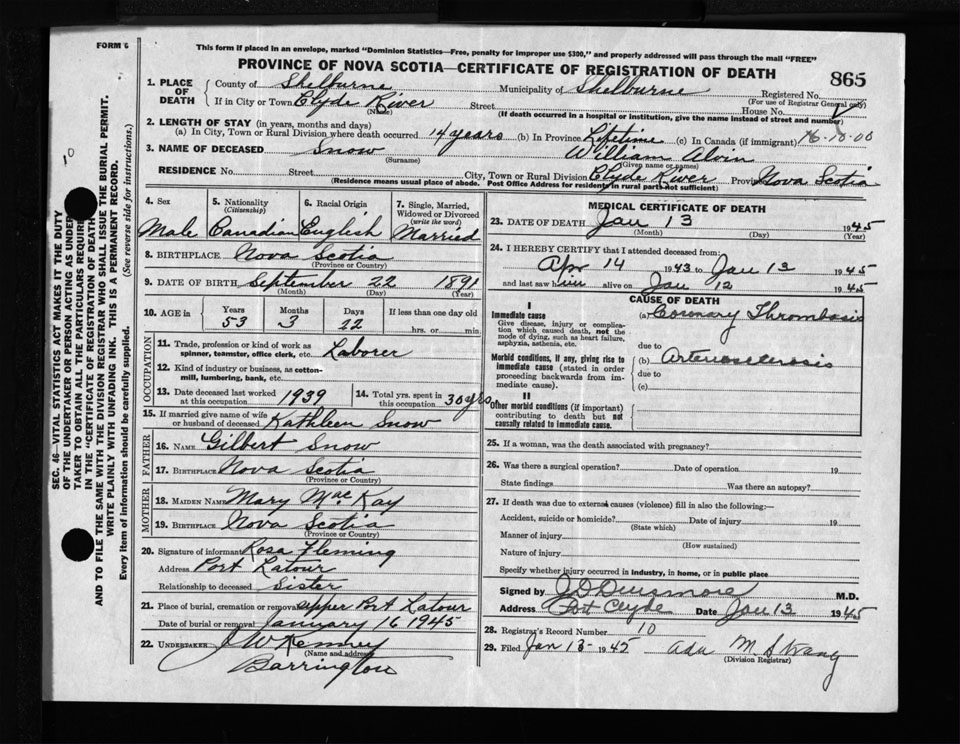 FORM 6
This form if placed in an envelope, marked "Dominion Statistics—Free, penalty for improper use $300," and properly addressed will pass through the mail "FREE"
PROVINCE OF NOVA SCOTIA—CERTIFICATE OF REGISTRATION OF DEATH
865
1. PLACE OF DEATH County of Shelburne Municipality of Shelburne Registered No.
(For use of Registrar General only)
If in City or Town Clyde River Street House No.
(Name) (If death occurred in a hospital or institution, give the name instead of street and number)
2. LENGTH OF STAY (in years, months and days)
(a) In City, Town or Rural Division where death occurred 14 years (b) In Province Lifetime (c) In Canada (if immigrant) 16-10-00
3. NAME OF DECEASED Snow William Alvin
(Surname) (Given name or names)
RESIDENCE No. Street City, Town or Rural Division Clyde River Province Nova Scotia
(Residence means usual place of abode. Post Office Address for residents in rural parts not sufficient)
4. Sex Male
5. Nationality (Citizenship) Canadian
6. Racial Origin English
7. Single, Married, Widowed or Divorced (write the word) Married
8. BIRTHPLACE Nova Scotia
(Province or Country)
9. DATE OF BIRTH September 22 1891
(Month) (Day) (Year)
10. AGE in Years 53 Months 3 Days 22 If less than one day old hrs. or min.
OCCUPATION
11. Trade, profession or kind of work as spinner, teamster, office clerk, etc. Laborer
12. Kind of industry or business, as cotton-mill, lumbering, bank, etc.
13. Date deceased last worked at this occupation 1939
14. Total yrs. spent in this occupation 30 yrs.
15. If married give name of wife or husband of deceased Kathleen Snow
FATHER
16. NAME Gilbert Snow
17. BIRTHPLACE Nova Scotia
(Province or Country)
MOTHER
18. MAIDEN NAME Mary MacKay
19. BIRTHPLACE Nova Scotia
(Province or Country)
20. Signature of informant Rosa Fleming
Address Port Latour
Relationship to deceased Sister
21. Place of burial, cremation or removal Upper Port Latour
Date of burial or removal January 16 1945
22. UNDERTAKER J W Kenney
(Name and address)
Barrington
MEDICAL CERTIFICATE OF DEATH
23. DATE OF DEATH Jan 13 1945
(Month) (Day) (Year)
24. I HEREBY CERTIFY that I attended deceased from:
Apr 14 1943 to Jan 13 1945
and last saw him alive on Jan 12 1945
CAUSE OF DEATH
I
Immediate cause
Give disease, injury or complication which caused death, not the mode of dying, such as heart failure, asphyxia, asthenia, etc.
(a) Coronary Thrombosis
due to
Morbid conditions, if any, giving rise to immediate cause (stated in order proceeding backwards from immediate cause).
(b) Arteriosclerosis
due to
(c)
II
Other morbid conditions (if important) contributing to death but not causally related to immediate cause.
25. If a woman, was the death associated with pregnancy?
26. Was there a surgical operation? Date of operation 19
State findings Was there an autopsy?
27. If death was due to external causes (violence) fill in also the following:—
Accident, suicide or homicide? Date of injury 19
(State which)
Manner of injury
(How sustained)
Nature of injury
Specify whether injury occurred in industry, in home, or in public place
Signed by M.D.
Address Port Clyde Date Jan 13 1945
28. Registrar's Record Number 10
29. Filed Jan 13- 1945 Ada M Strang
(Division Registrar)
10
SEC. 46—VITAL STATISTICS ACT MAKES IT THE DUTY
OF THE UNDERTAKER OR PERSON ACTING AS UNDER-
TAKER TO OBTAIN ALL THE PARTICULARS REQUIRED
IN THE "CERTIFICATE OF REGISTRATION OF DEATH"
AND TO FILE THE SAME WITH THE DIVISION REGISTRAR WHO SHALL ISSUE THE BURIAL PERMIT.
WRITE PLAINLY WITH UNFADING INK. THIS IS A PERMANENT RECORD.
Every item of information should be carefully supplied. (See reverse side for instructions.)